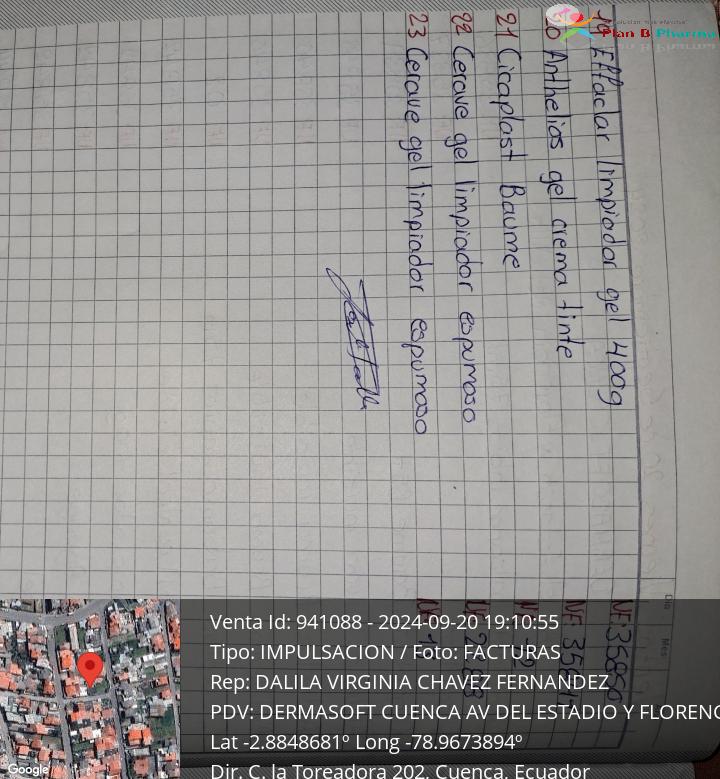 Plan B Pharma
19 Effaclar limpiador gel 400g
20 Anthelios gel crema tinte
21 Cicaplast Baume
22 Cerave gel limpiador espumoso
23 Cerave gel limpiador espumoso
Dia Mes
Venta Id: 941088 - 2024-09-20 19:10:55
Tipo: IMPULSACION / Foto: FACTURAS
Rep: DALILA VIRGINIA CHAVEZ FERNANDEZ
PDV: DERMASOFT CUENCA AV DEL ESTADIO Y FLORENC
Lat -2.8848681º Long -78.9673894º
Dir. C. la Toreadora 202, Cuenca, Ecuador
Google